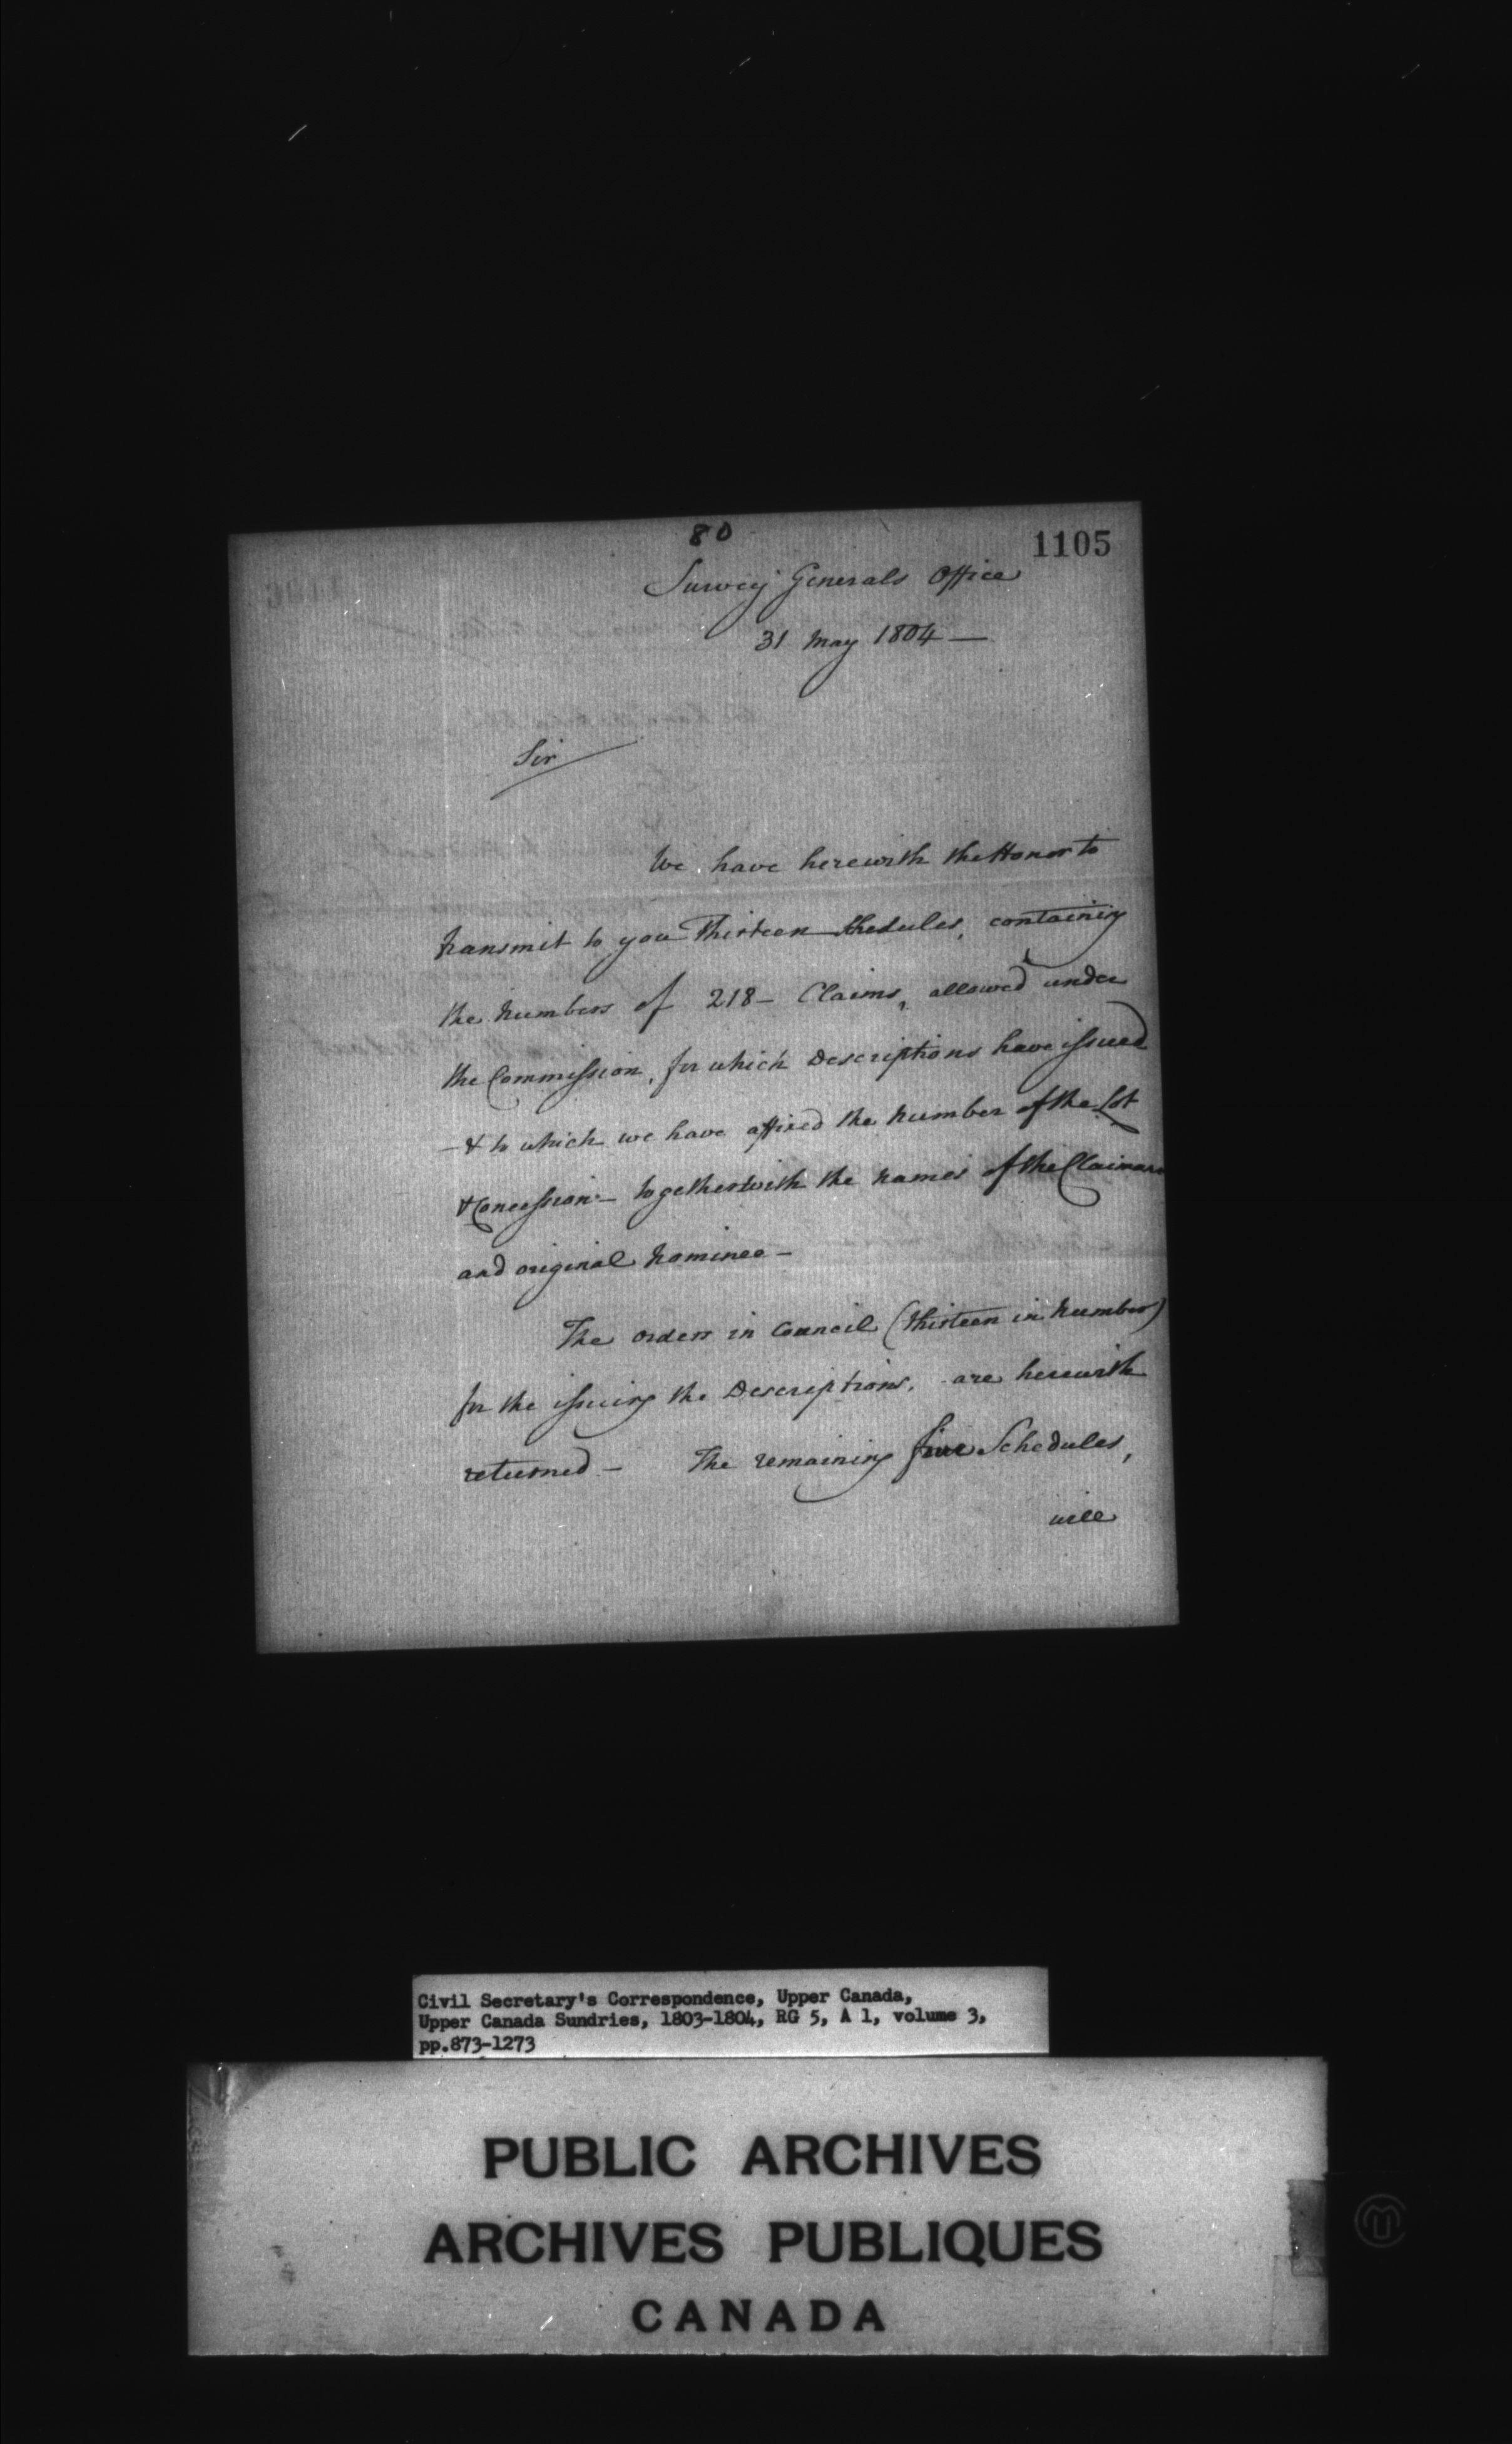 80
1105
Survey Generals Office
31 May 1804 —
Sir
We have herewith the Honor to
transmit to you Thirteen Schedules, containing
the Numbers of 218 – Claims, allowed under
the Commission, for which Descriptions have issued
– & to which we have affixed the Number of the Lot
& Concession – together with the names of the Claimant
and original Nominee –
The orders in Council (thirteen in Number)
for the issuing the Descriptions, are herewith
returned – The remaining five Schedules,
will
Civil Secretary's Correspondence, Upper Canada,
Upper Canada Sundries, 1803-1804, RG 5, A 1, volume 3,
pp.873-1273
PUBLIC ARCHIVES
ARCHIVES PUBLIQUES
CANADA